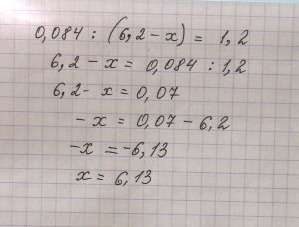 0,084 : (6,2 - x) = 1,2
6,2 - x = 0,084 : 1,2
6,2 - x = 0,07
- x = 0,07 - 6,2
-x = -6,13
x = 6,13